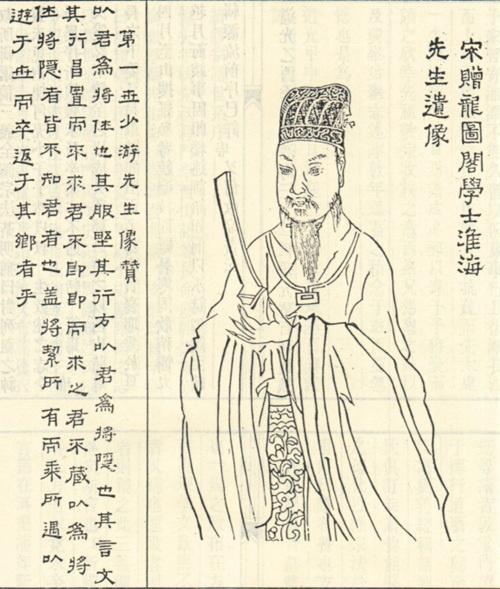 宋贈龍圖閣學士淮海
先生遺像
第一世少游先生像贊
以君爲將仕也其服野其行方以君爲將隱也其言文
其行昌置而不求君不即即而求之君不藏以爲將
仕將隱者皆不知君者也盖將挈所有而乘所遇以
遊于世而卒返于其鄉者乎